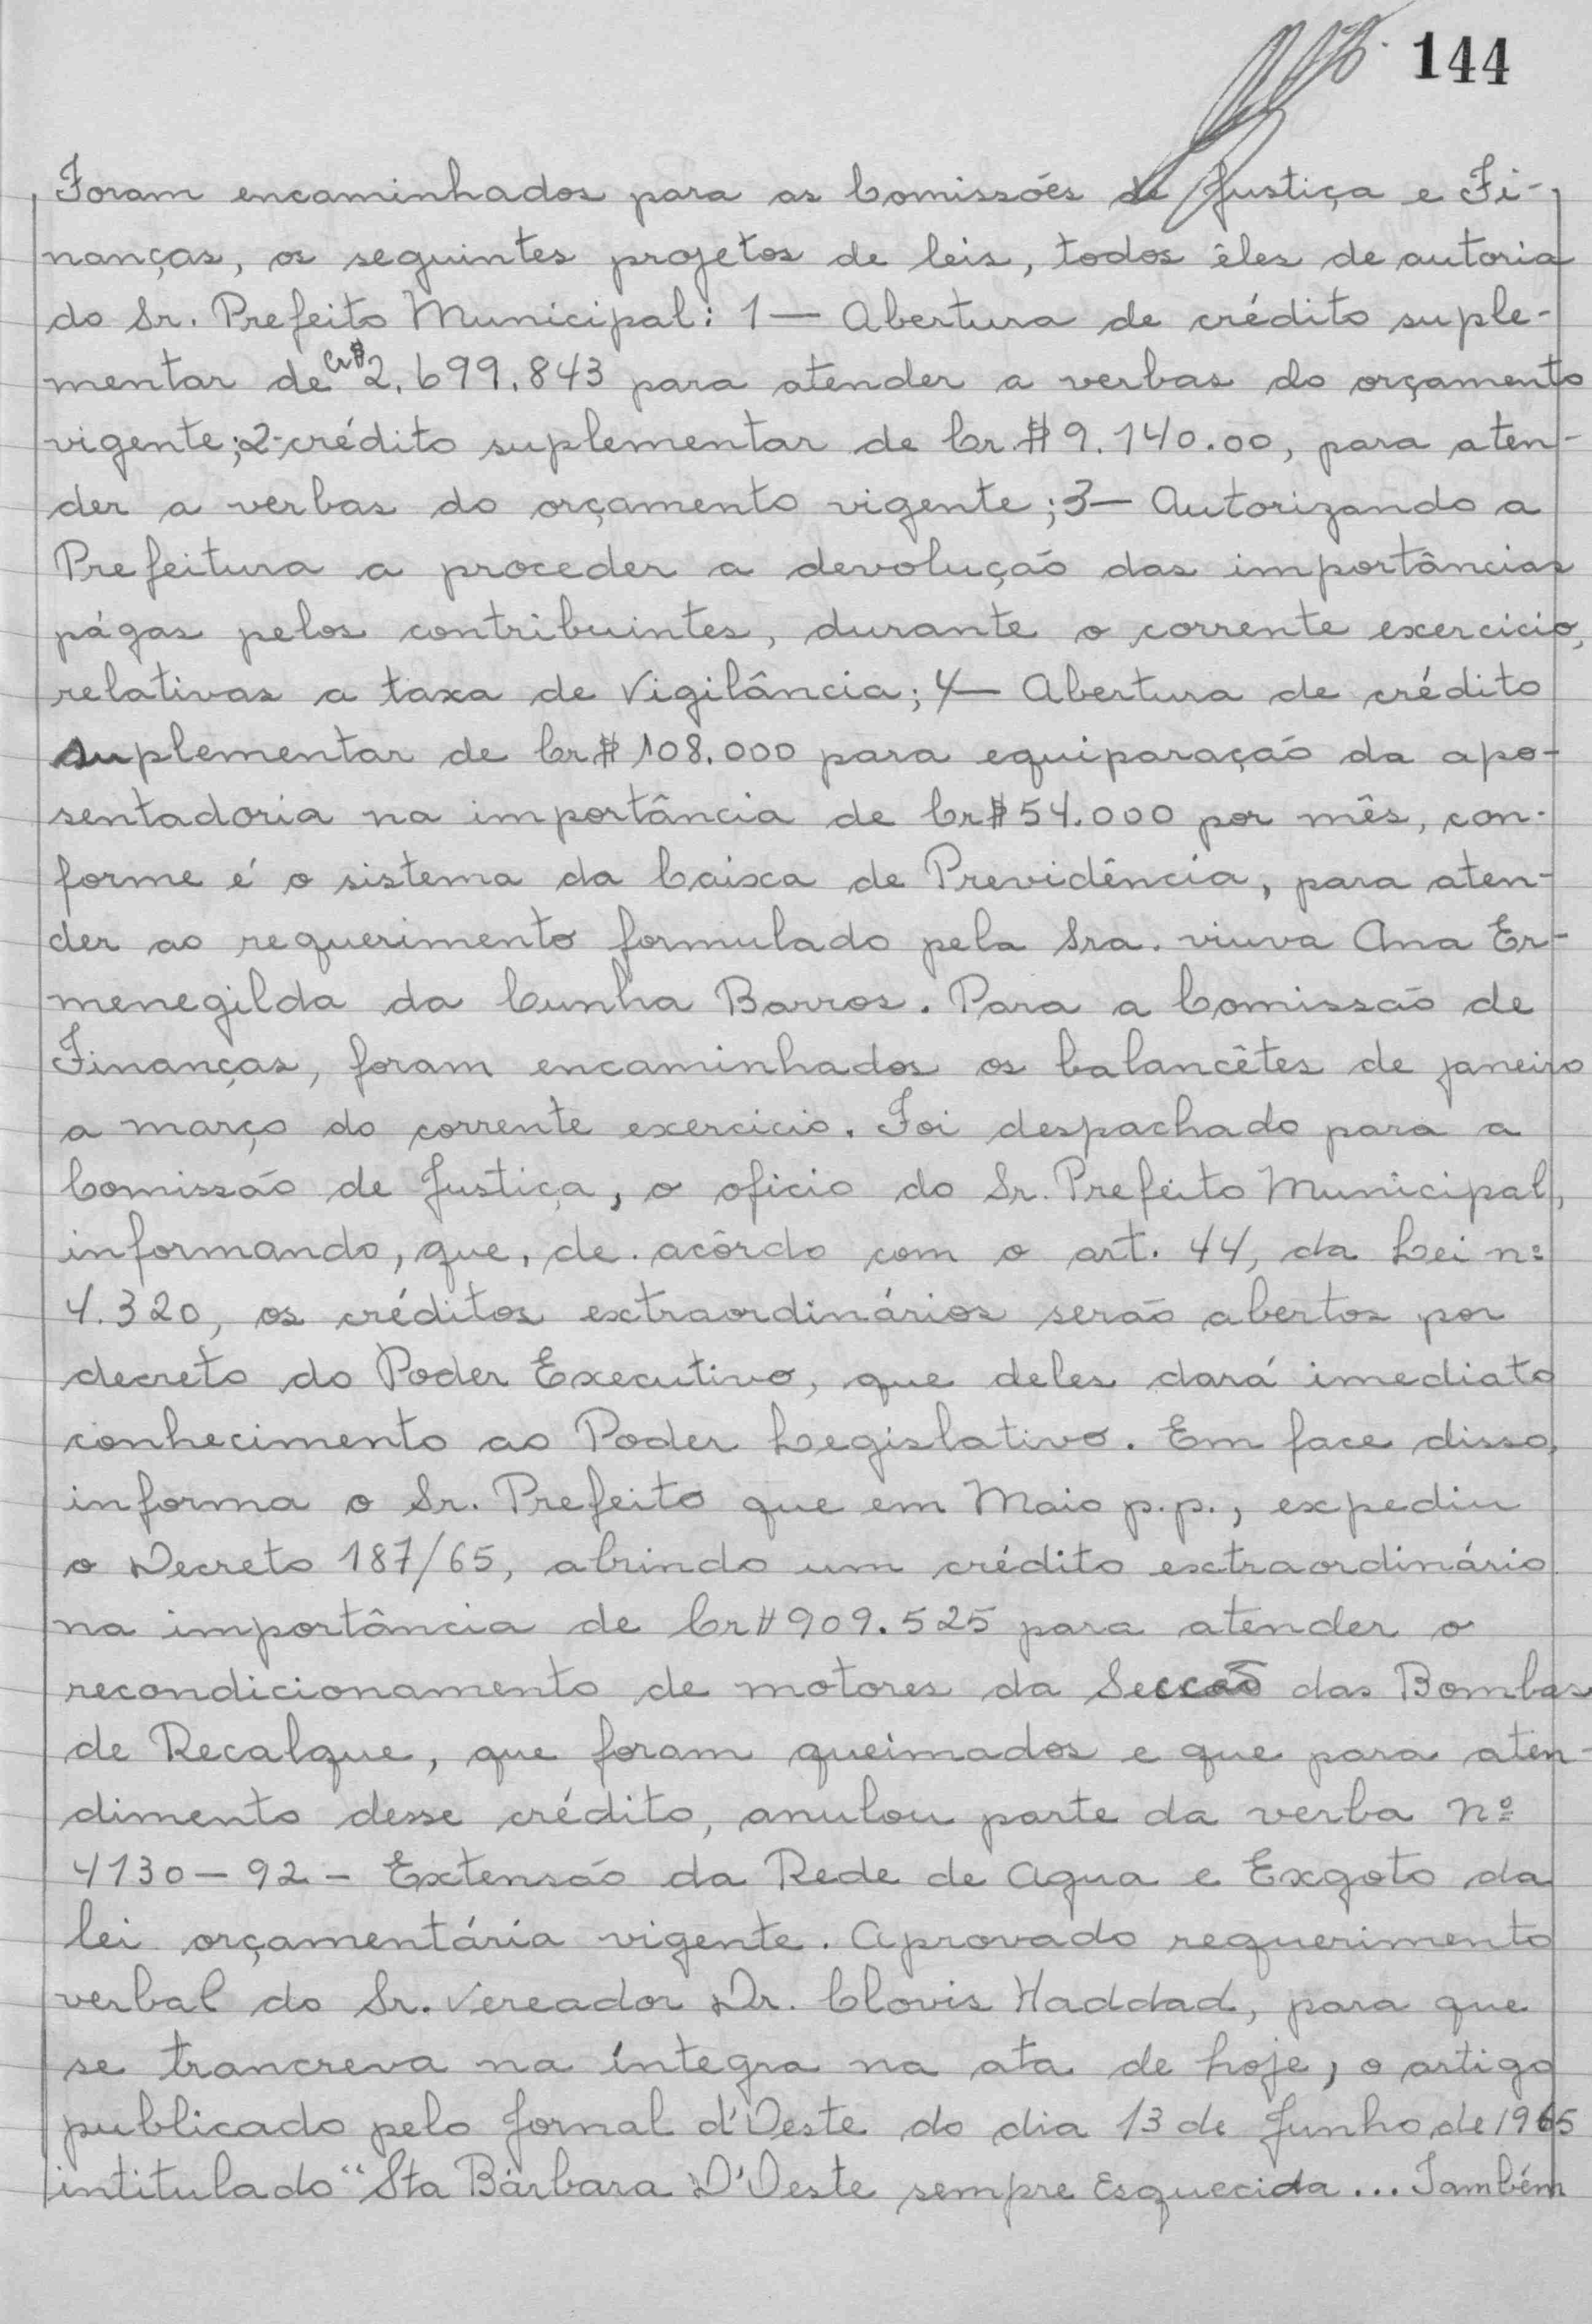 144
Foram encaminhados para as Comissões de Justiça e Fi-
nanças, os seguintes projetos de leis, todos êles de autoria
do Sr. Prefeito Municipal: 1 — Abertura de crédito suple-
mentar de Cr$ 2.699.843 para atender a verbas do orçamento
vigente; 2- crédito suplementar de Cr.$ 9.140.00, para aten-
der a verbas do orçamento vigente; 3— Autorizando a
Prefeitura a proceder a devolução das importâncias
págas pelos contribuintes, durante o corrente exercicio,
relativas a taxa de Vigilância; 4— Abertura de crédito
suplementar de Cr$ 108.000 para equiparação da apo-
sentadoria na importância de Cr$ 54.000 por mês, con-
forme é o sistema da Caixa de Previdência, para aten-
der ao requerimento formulado pela Sra. viuva Ana Er-
menegilda da Cunha Barros. Para a Comissão de
Finanças, foram encaminhados os balancêtes de janeiro
a março do corrente exercicio. Foi despachado para a
Comissão de Justiça, o oficio do Sr. Prefeito Municipal,
informando, que, de acôrdo com o art. 44, da Lei nº
4.320, os créditos extraordinários serão abertos por
decreto do Poder Executivo, que deles dará imediato
conhecimento ao Poder Legislativo. Em face disso,
informa o Sr. Prefeito que em Maio p.p., expediu
o Decreto 187/65, abrindo um crédito extraordinário
na importância de Cr$ 909.525 para atender o
recondicionamento de motores da Secção das Bombas
de Recalque, que foram queimados e que para aten-
dimento desse crédito, anulou parte da verba nº
4130 – 92 – Extensão da Rede de Agua e Exgoto da
lei orçamentária vigente. Aprovado requerimento
verbal do Sr. Vereador Dr. Clovis Haddad, para que
se trancreva na íntegra na ata de hoje, o artigo
publicado pelo Jornal d'Oeste do dia 13 de Junho de 1965
intitulado "Sta Bárbara D'Oeste sempre Esquecida... Também